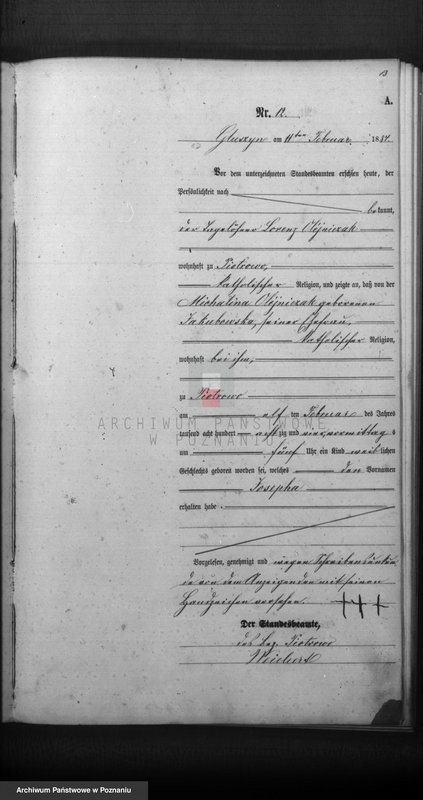 13
A.
Nr. 12.
Gluszyn am 11ten Februar 1884
Vor dem unterzeichneten Standesbeamten erschien heute, der
Persönlichkeit nach
bekannt,
der Tagelöhner Lorenz Olejniczak
wohnhaft zu Piotrowo,
katholischer Religion, und zeigte an, daß von der
Michalina Olejniczak geborenen
Jakubowska, seiner Ehefrau,
katholischer Religion,
wohnhaft bei ihm,
zu Piotrowo
am elf ten Februar des Jahres
tausend acht hundert acht zig und vier, vormittags
um fünf Uhr ein Kind weib lichen
Geschlechts geboren worden sei, welches den Vornamen
Josepha
erhalten habe.
Vorgelesen, genehmigt und wegen Schreibensunkun
de von dem Anzeigenden mit seinem
Handzeichen versehen. +++
Der Standesbeamte,
des Bez. Piotrowo
Weichert
ARCHIWUM PAŃSTWOWE
W POZNANIU
Archiwum Państwowe w Poznaniu